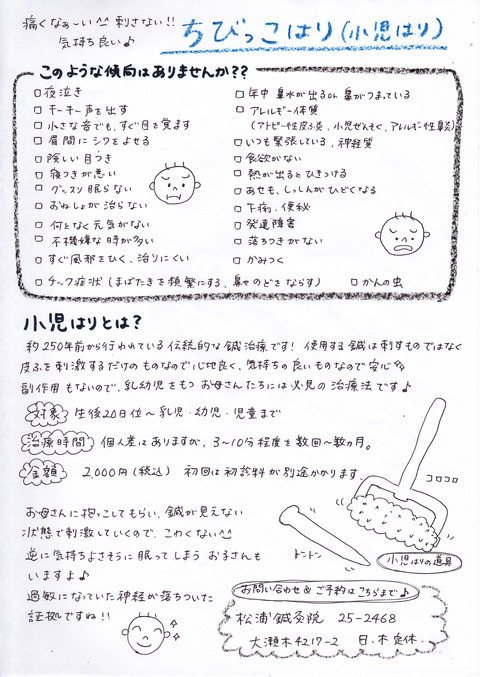 痛くなぁ～い^^ 刺さない!!
気持ち良い♪
ちびっこはり(小児はり)
このような傾向はありませんか??
□夜泣き
□キーキー声を出す
□小さな音でも、すぐ目を覚ます
□眉間にシワをよせる
□険しい目つき
□寝つきが悪い
□グッスリ眠らない
□おねしょが治らない
□何となく元気がない
□不機嫌な時が多い
□すぐ風邪をひく、治りにくい
□チック症状(まばたきを頻繁にする、鼻やのどをならす)
□年中鼻水が出るor鼻がつまっている
□アレルギー体質
(アトピー性皮ふ炎、小児ぜんそく、アレルギー性鼻炎)
□いつも緊張している、神経質
□食欲がない
□熱が出るとひきつける
□あせも、しっしんがひどくなる
□下痢、便秘
□発達障害
□落ちつきがない
□かみつく
□かんの虫
小児はりとは?
約250年前から行われている伝統的な鍼治療です! 使用する鍼は刺すものではなく
皮ふを刺激するだけのものなので心地良く、気持ちの良いものなので安心
副作用もないので、乳幼児をもつお母さんたちには必見の治療法です♪
対象 生後20日位～乳児・幼児・児童まで
治療時間 個人差はありますが、3～10分程度を数回～数ヵ月。
金額 2,000円(税込) 初回は初診料が別途かかります。
お母さんに抱っこしてもらい、鍼が見えない
状態で刺激していくので、こわくない^^
逆に気持ちよさそうに眠ってしまうお子さんも
いますよ♪
過敏になっていた神経が落ちついた
証拠ですね!!
コロコロ
トントン
小児はりの道具
お問い合わせ&ご予約はこちらまで♪
松浦鍼灸院 25-2468
大瀬木4217-2 日、木定休